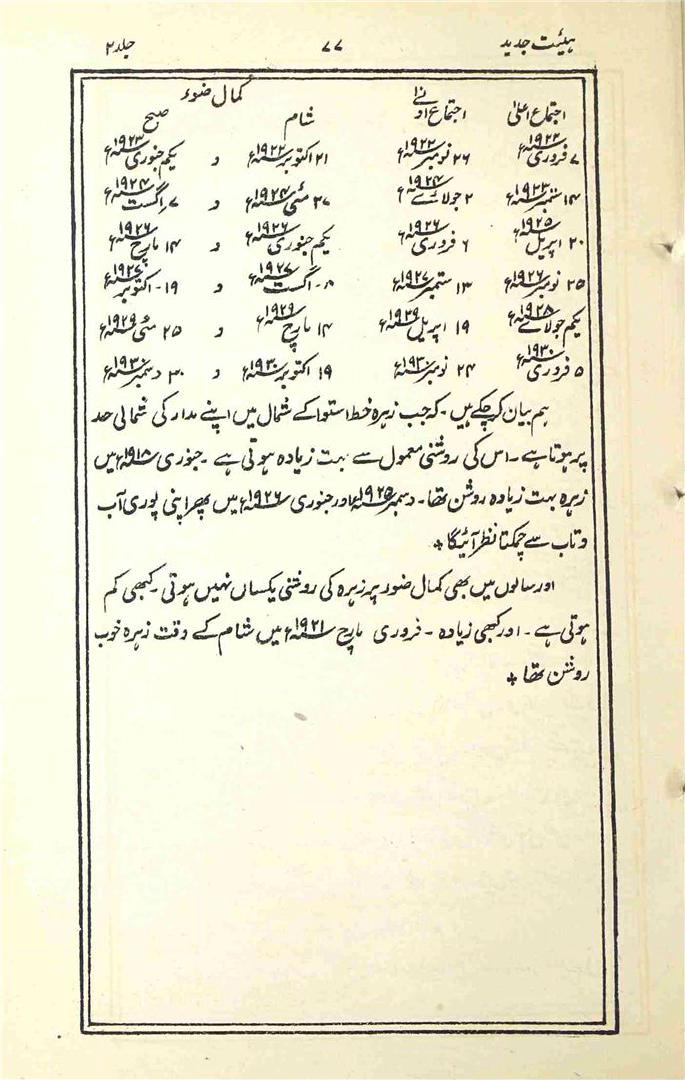 ہیئت جدید ۷۷ جلد ۲
کمال ضوء
اجتماع اعلیٰ اجتماع اونےٰ شام صبح
۷ فروری ۱۹۲۲ء ۲۶ نومبر ۱۹۲۲ء ۲۱ اکتوبر ۱۹۲۲ء و یکم جنوری ۱۹۲۳ء
۱۴ ستمبر ۱۹۲۳ء ۲ جولائے ۱۹۲۴ء ۲۷ مئی ۱۹۲۴ء و ۷ اگست ۱۹۲۴ء
۲۰ اپریل ۱۹۲۵ء ۶ فروری ۱۹۲۶ء یکم جنوری ۱۹۲۶ء و ۱۴ مارچ ۱۹۲۶ء
۲۵ نومبر ۱۹۲۶ء ۱۳ ستمبر ۱۹۲۷ء ۸ - اگست ۱۹۲۷ء و ۱۹ - اکتوبر ۱۹۲۷ء
یکم جولائے ۱۹۲۸ء ۱۹ اپریل ۱۹۲۹ء ۱۴ مارچ ۱۹۲۹ء و ۲۵ مئی ۱۹۲۹ء
۵ فروری ۱۹۳۰ء ۲۴ نومبر ۱۹۳۰ء ۱۹ اکتوبر ۱۹۳۰ء و ۳۰ دسمبر ۱۹۳۰ء
ہم بیان کرچکے ہیں۔ کہ جب زہرہ خط استوا کے شمال میں اپنے مدار کی شمالی حد
پر ہوتا ہے۔ اس کی روشنی معمول سے بہت زیادہ ہوتی ہے۔ جنوری ۱۹۱۸ء میں
زہرہ بہت زیادہ روشن تھا۔ دسمبر ۱۹۲۵ء اور جنوری ۱۹۲۶ء میں پھر اپنی پوری آب
و تاب سے چمکتا نظر آئیگا *
اور سالوں میں بھی کمال ضوء پر زہرہ کی روشنی یکساں نہیں ہوتی۔ کبھی کم
ہوتی ہے۔ اور کبھی زیادہ۔ فروری مارچ ۱۹۲۱ء میں شام کے وقت زہرہ خوب
روشن تھا *